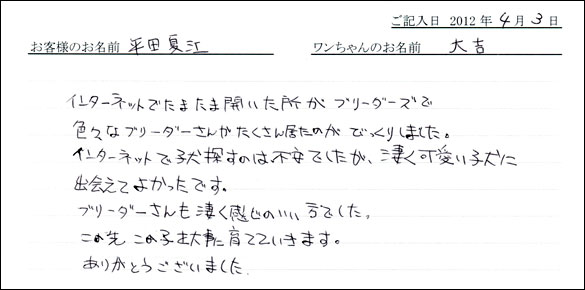 ご記入日 2012年4月3日
お客様のお名前 平田夏江 ワンちゃんのお名前 大吉
インターネットでたまたま開いた所が ブリーダーズで
色々なブリーダーさんがたくさん居たのが びっくりしました。
インターネットで子犬探すのは不安でしたが、凄く可愛い子犬に
出会えてよかったです。
ブリーダーさんも凄く感じのいい方でした。
この先 この子を大事に育てていきます。
ありがとうございました